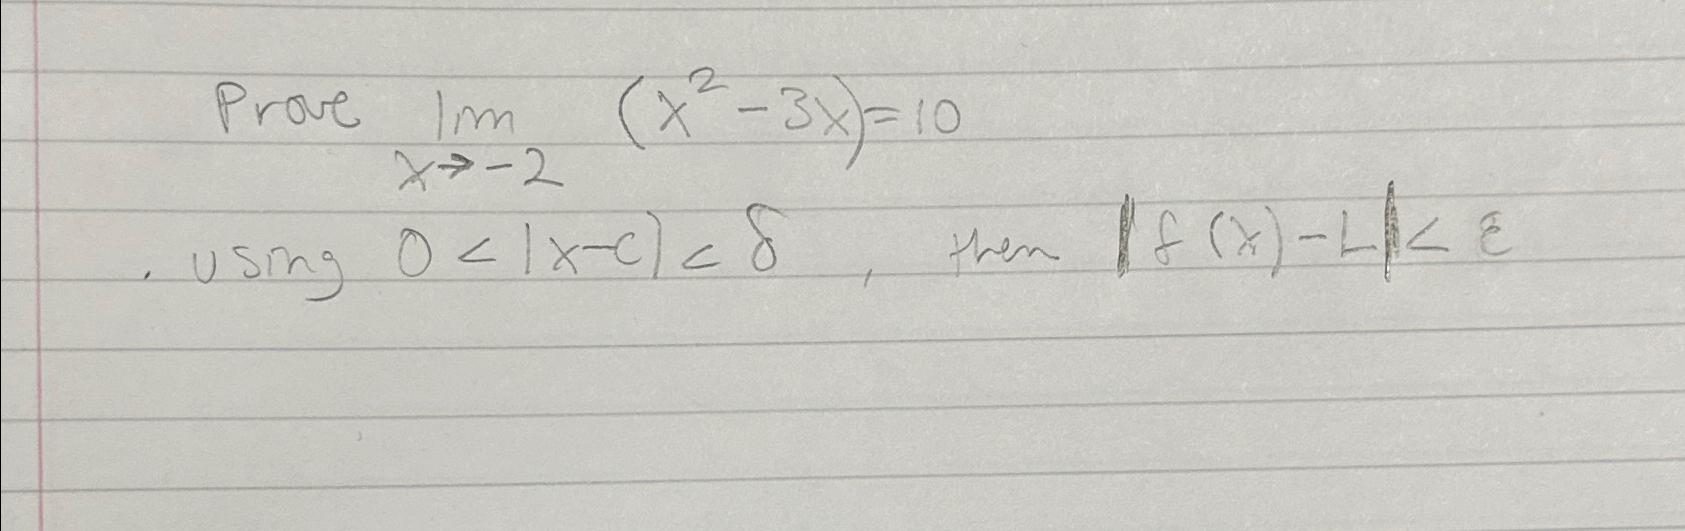 Prove lim (x² - 3x) = 10
x → -2
. using 0 < |x-c| < δ , then |f(x) - L| < ε